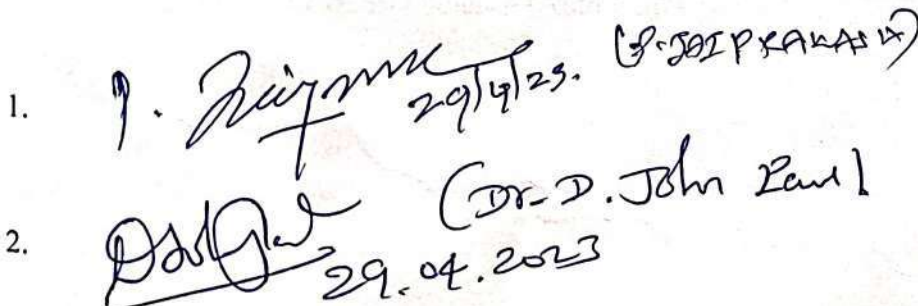 1. 29/4/23. (P. JAIPRAKASH)
2. (Dr. D. John Paul)
29.04.2023